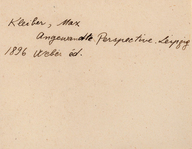 Kleiber, Max
Angewandte Perspective. Leipzig
1896 Weber ed.